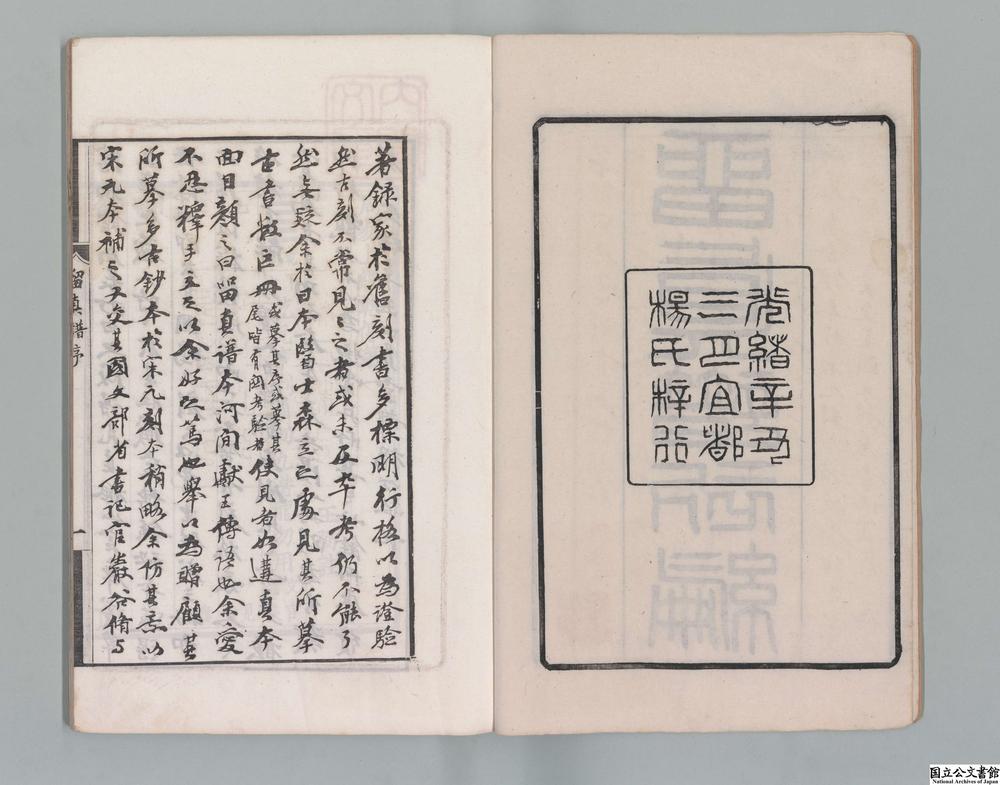 光緒辛丑
三月宜都
楊氏梓行
著錄家於舊刻書多標明行格以為證驗
然古刻不常見見之者或未及卒考仍不能了
然無疑余於日本醫士森立之處見其所摹
古書數巨冊或摹其序或摹其尾皆有關考驗者使見者如遘真本
面目顏之曰留真譜本河間獻王傳語也余愛
不忍釋手立之以余好之篤也舉以為贈顧其
所摹多古鈔本於宋元刻本稍略余仿其意以
宋元本補之又交其國文部省書記官巖谷脩與
留真譜序
一
国立公文書館
National Archives of Japan